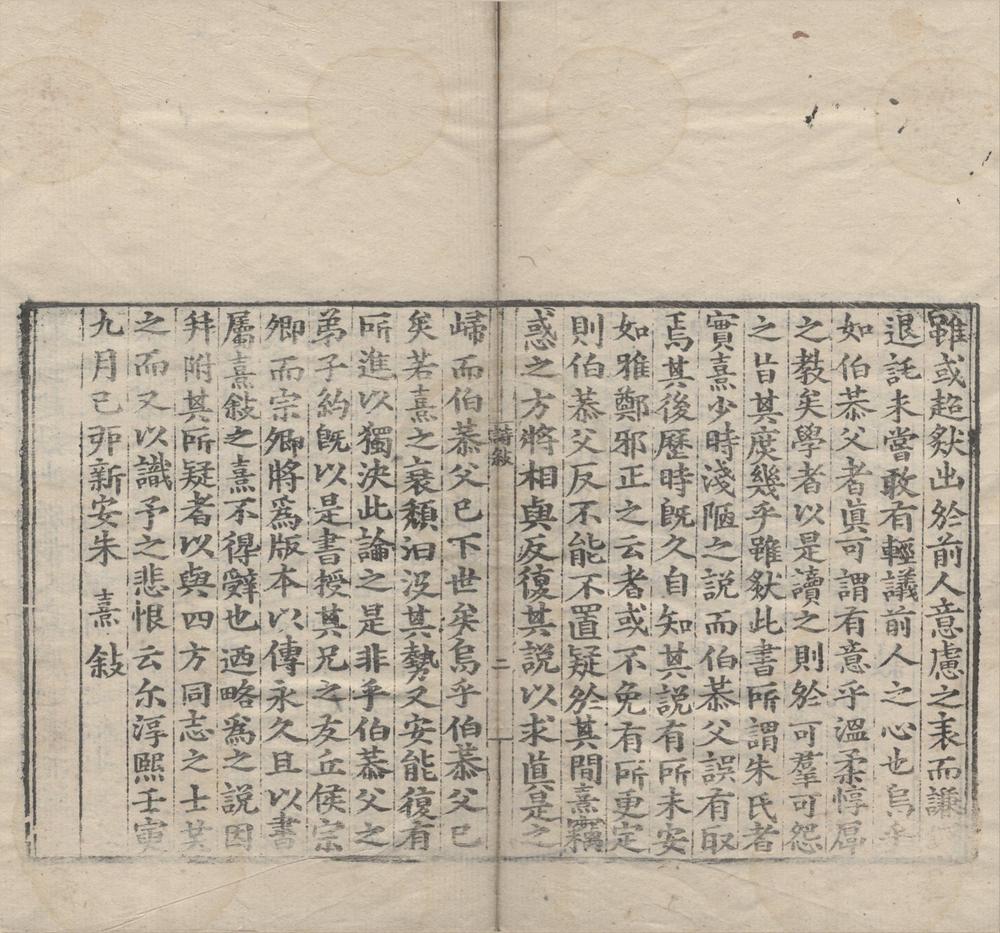 雖或超然出於前人意慮之表而謙
退託未嘗敢有輕議前人之心也烏乎
如伯恭父者眞可謂有意乎溫柔惇厚
之教矣學者以是讀之則於可羣可怨
之旨其庶幾乎雖然此書所謂朱氏者
實熹少時淺陋之説而伯恭父誤有取
焉其後歷時旣久自知其説有所未安
如雅鄭邪正之云者或不免有所更定
則伯恭父反不能不置疑於其間熹竊
惑之方將相與反復其説以求眞是之
詩敍 二
歸而伯恭父已下世矣烏乎伯恭父已
矣若熹之衰頹汩没其勢又安能復有
所進以獨決此論之是非乎伯恭父之
弟子約旣以是書授其兄之友丘侯宗
卿而宗卿將爲版本以傳永久且以書
屬熹敍之熹不得辭也迺略爲之説因
幷附其所疑者以與四方同志之士共
之而又以識予之悲恨云尔淳熙壬寅
九月己卯新安朱熹敍